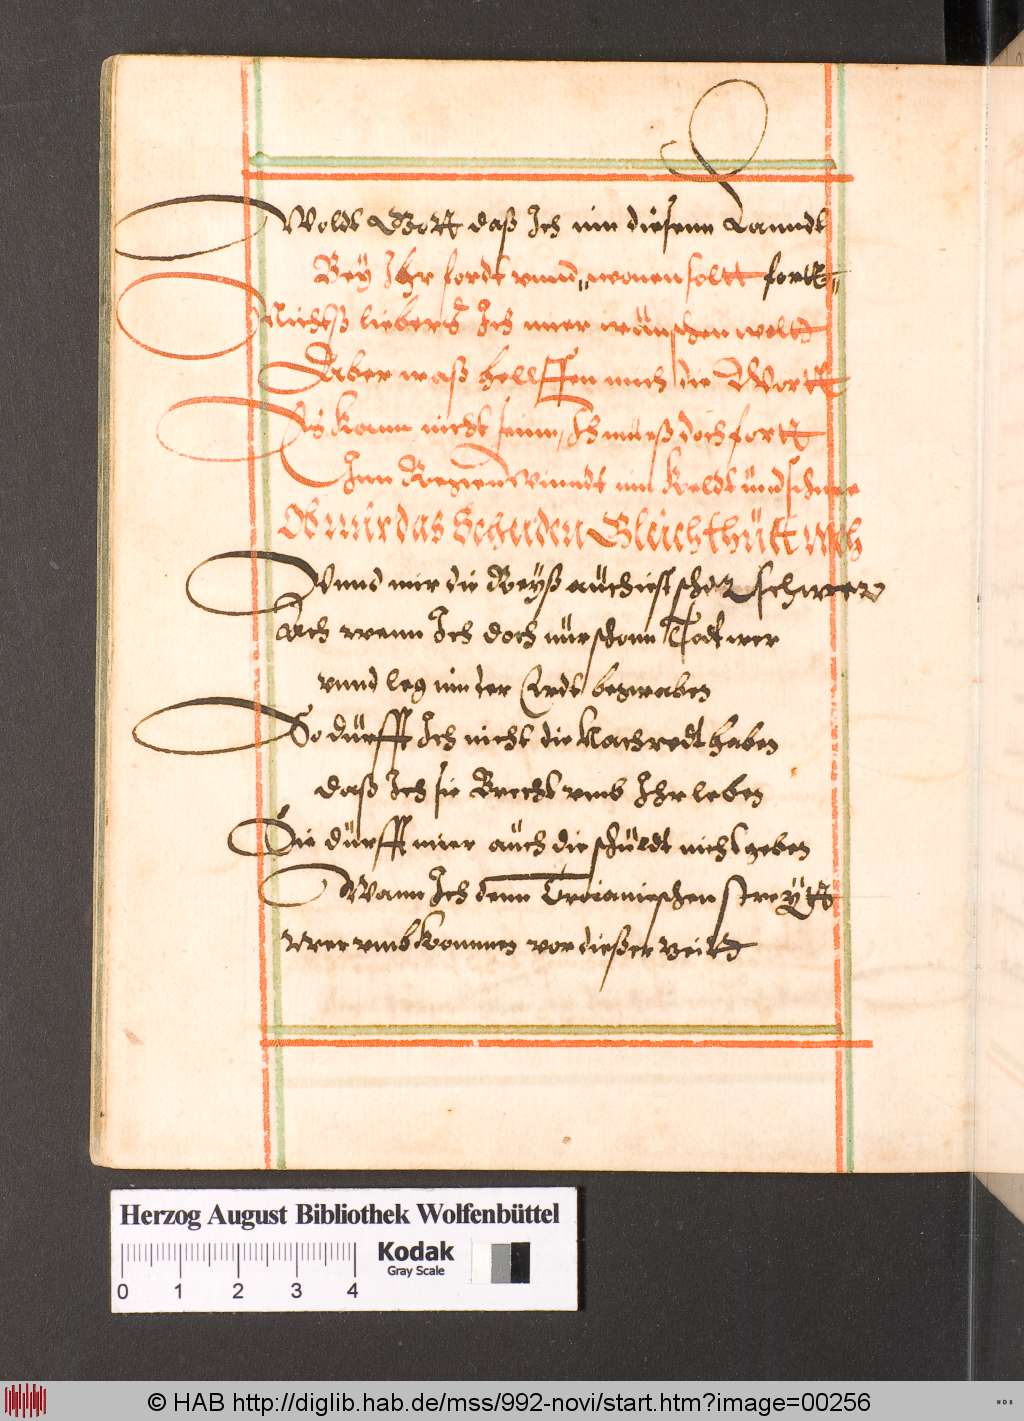 Woldt Gott daß Ich inn diesenn Lanndt
Bey Ihr fordt vnnd wonen soltt fortt
Nichtß liebers Ich mier wünschen woltt
Aber waß hellffen mich die Wortt
Eß kann nicht seinn, Ich mueß doch fortt
Inn Regen Winndt inn Keldt und schnee
Ob mir das Scheiden Gleich thütt weh
Vnnd mir die Reyß auch ist schar schwer
Ach wenn Ich doch nur schonn Todt wer
vnnd leg inn der Erdt begraben
So dürfft Ich nicht die Nachredt haben
daß Ich sie Brecht vmb Ihr leben
Sie dürfft mier auch die schüldt nicht geben
Wann Ich denn Troianischen streytt
wer vmb kommen vor dießer zeitt
Herzog August Bibliothek Wolfenbüttel
Kodak
Gray Scale
0 1 2 3 4
© HAB http://diglib.hab.de/mss/992-novi/start.htm?image=00256